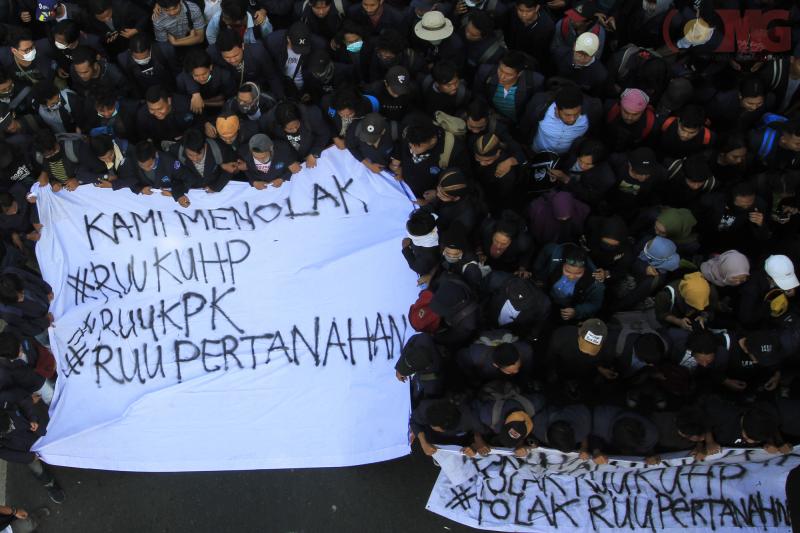 KAMI MENOLAK
#RUU KUHP
#RUU KPK
#RUU PERTANAHAN
TOLAK RUU KUHP
#TOLAK RUU PERTANAHAN
OMG